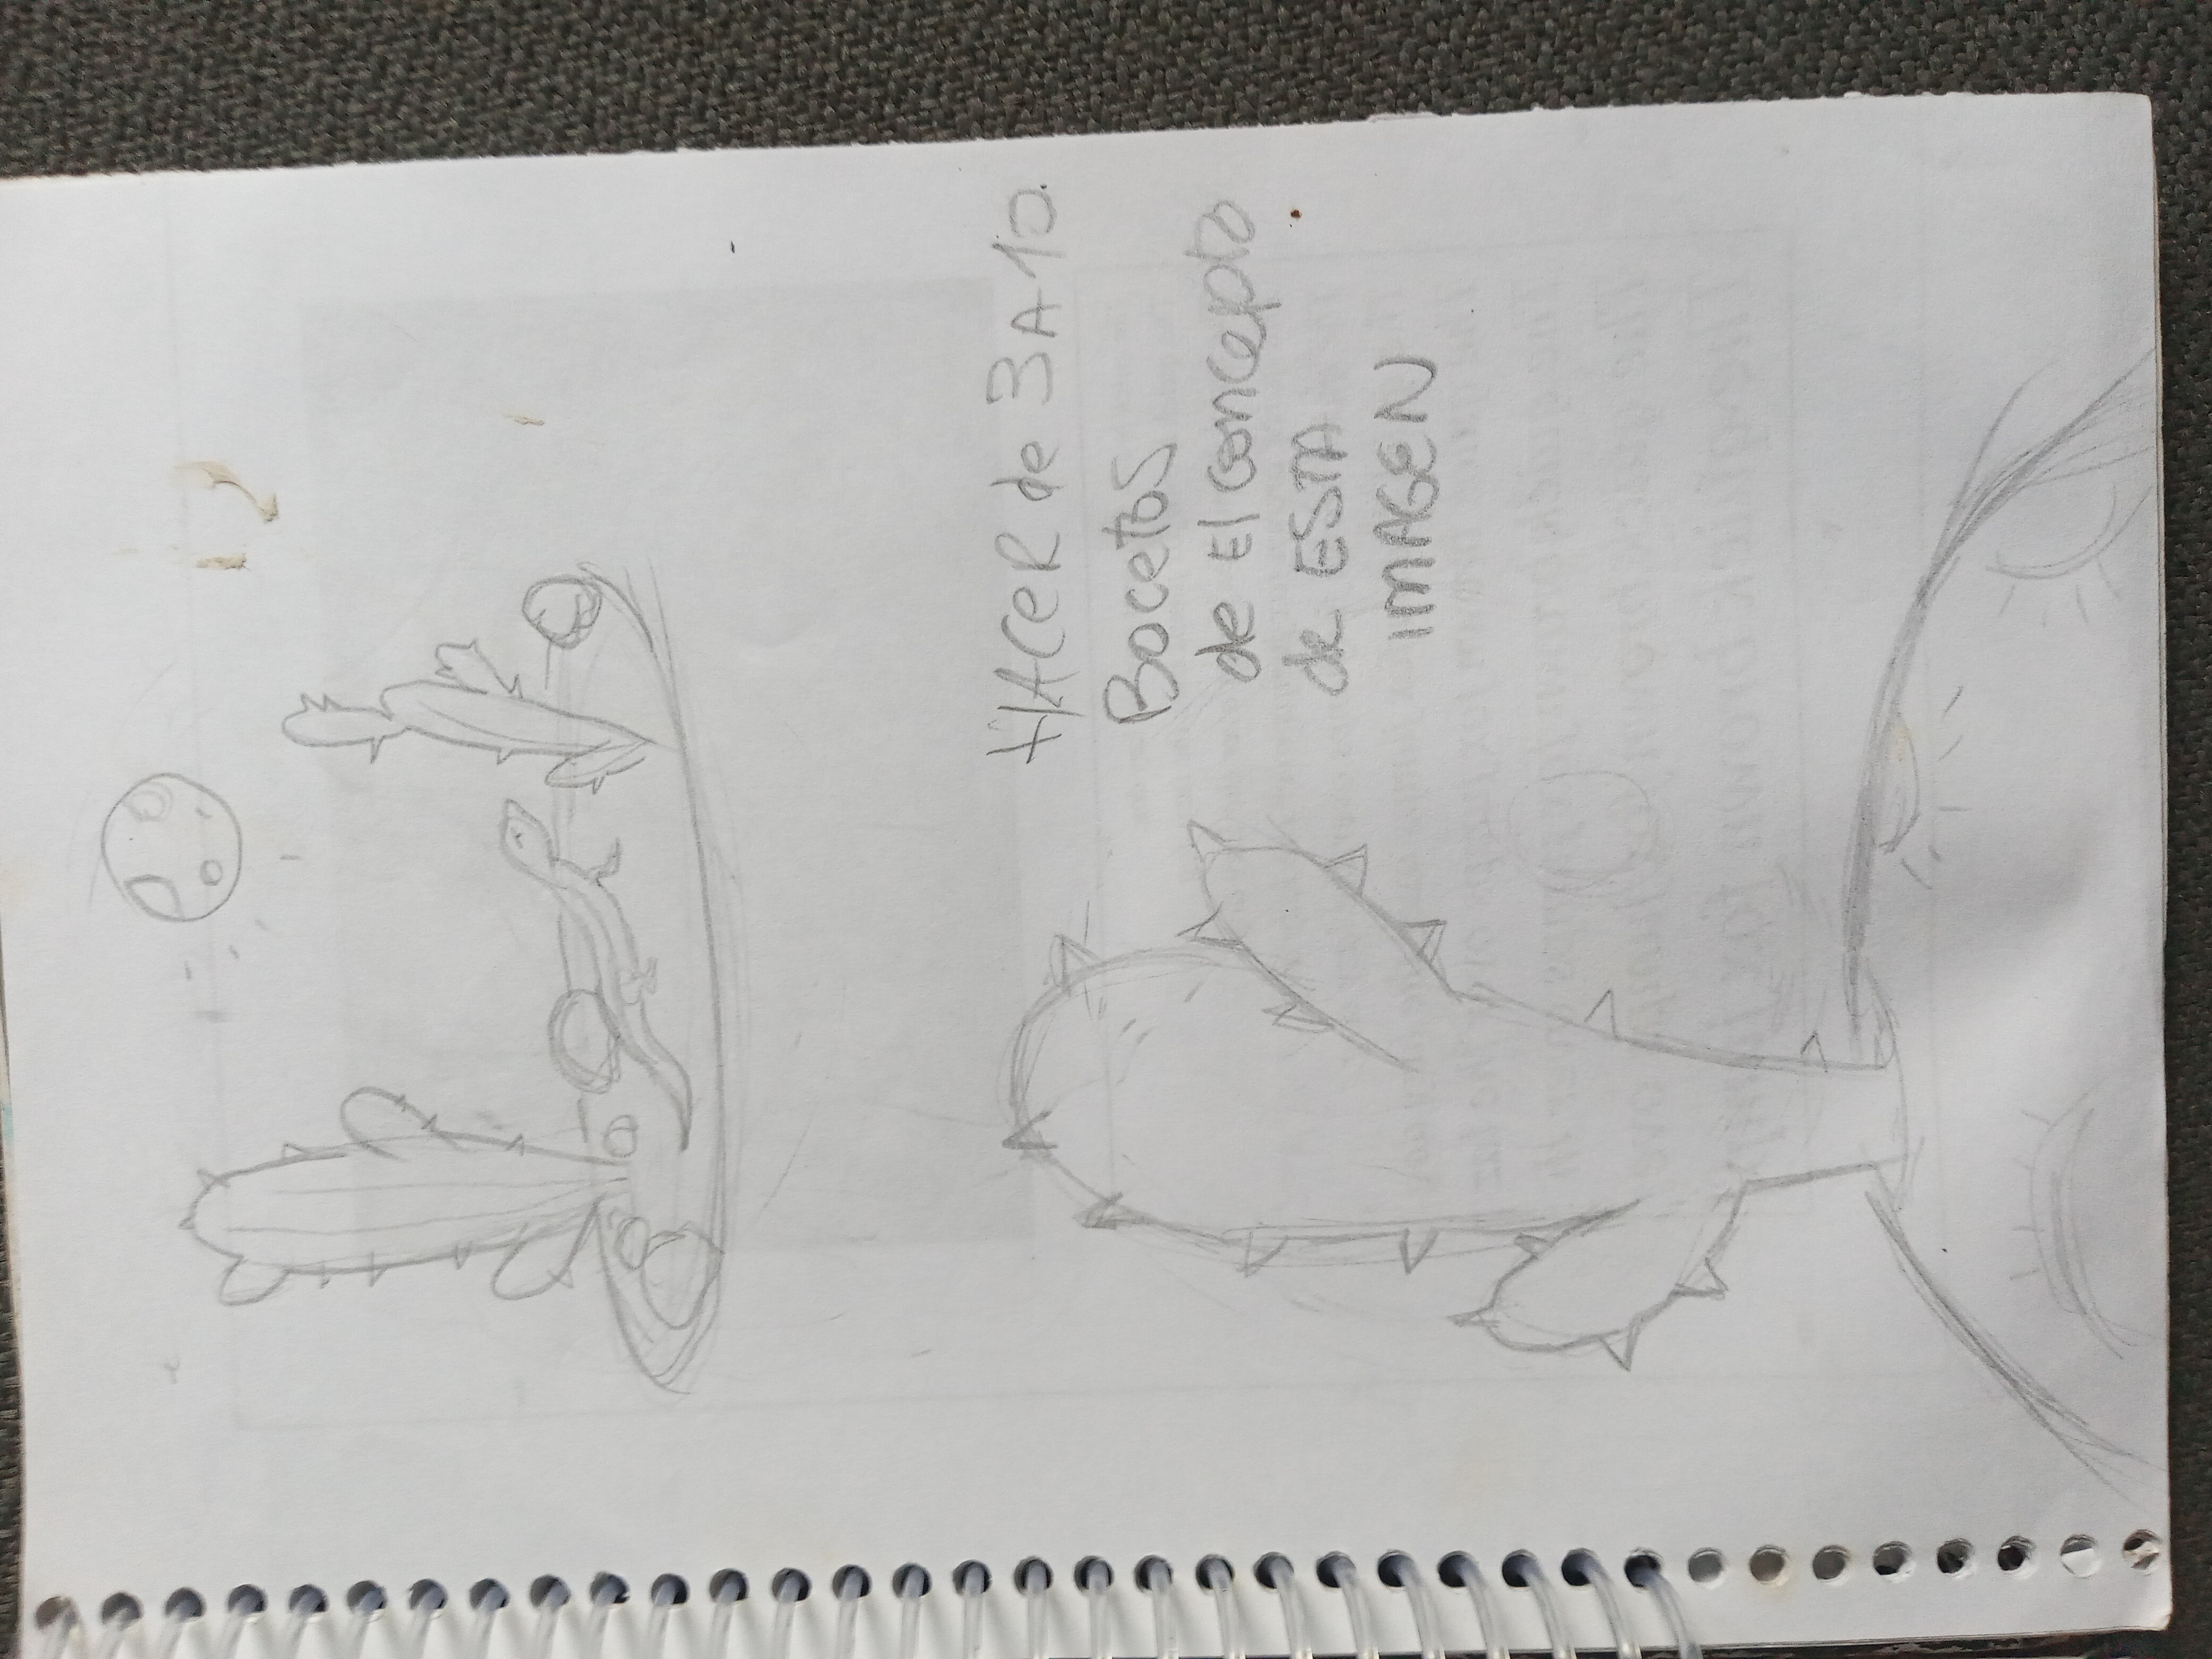 HACER de 3 A 10
Bocetos
de El concepto
de ESTA
IMAGEN